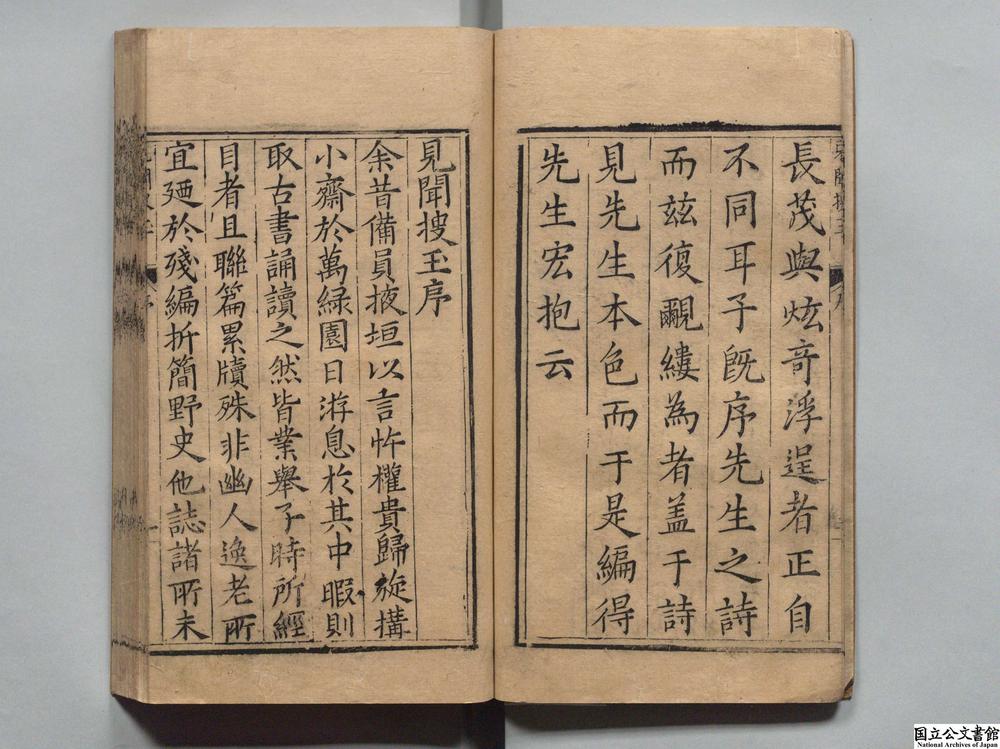 長茂與炫竒浮逞者正自
不同耳子既序先生之詩
而玆復覼縷為者盖于詩
見先生本色而于是編得
先生宏抱云
見聞搜玉序
余昔備員掖垣以言忤權貴歸旋搆
小齋於萬緑園日游息於其中暇則
取古書誦讀之然皆業舉子時所經
目者且聯篇累牘殊非幽人逸老所
宜廼於殘編折簡野史他誌諸所未
国立公文書館
National Archives of Japan